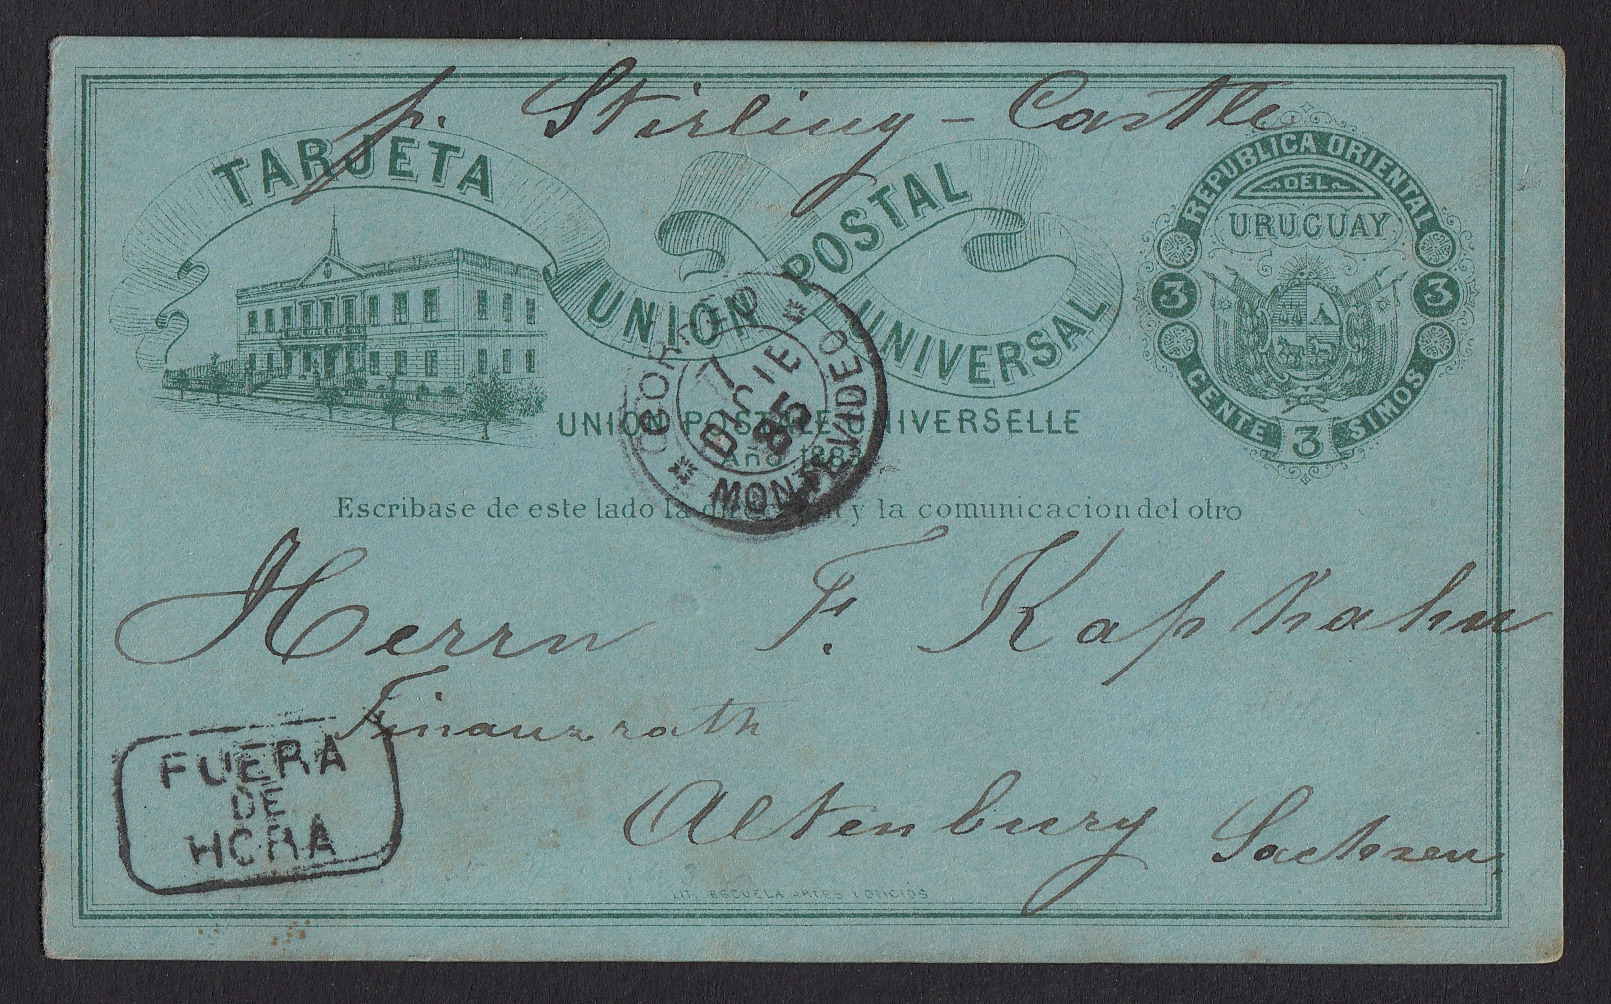 p. Stirling-Castle
TARJETA POSTAL
UNION UNIVERSAL
REPUBLICA ORIENTAL
DEL
URUGUAY
3 3
CENTESIMOS
3
UNION POSTALE UNIVERSELLE
Año 188
MONTEVIDEO
7
DICIE
85
Escribase de este lado la direccion y la comunicacion del otro
Herrn F. Kaphahn
Finanzrath
FUERA
DE
HORA
Altenburg Sachsen
LIT. ESCUELA ARTES Y OFICIOS